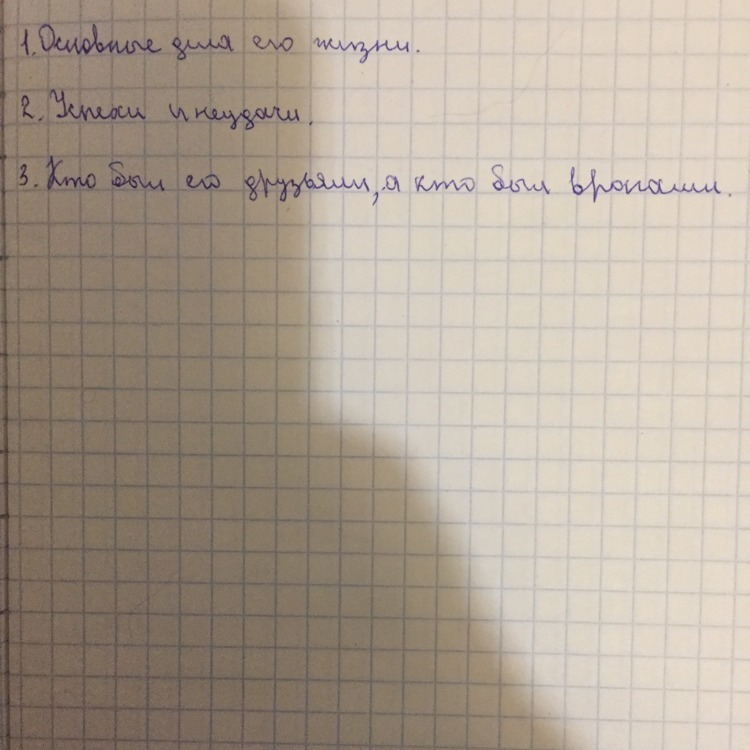 1. Основные дела его жизни.
2. Успехи и неудачи.
3. Кто был его друзьями, а кто был врагами.